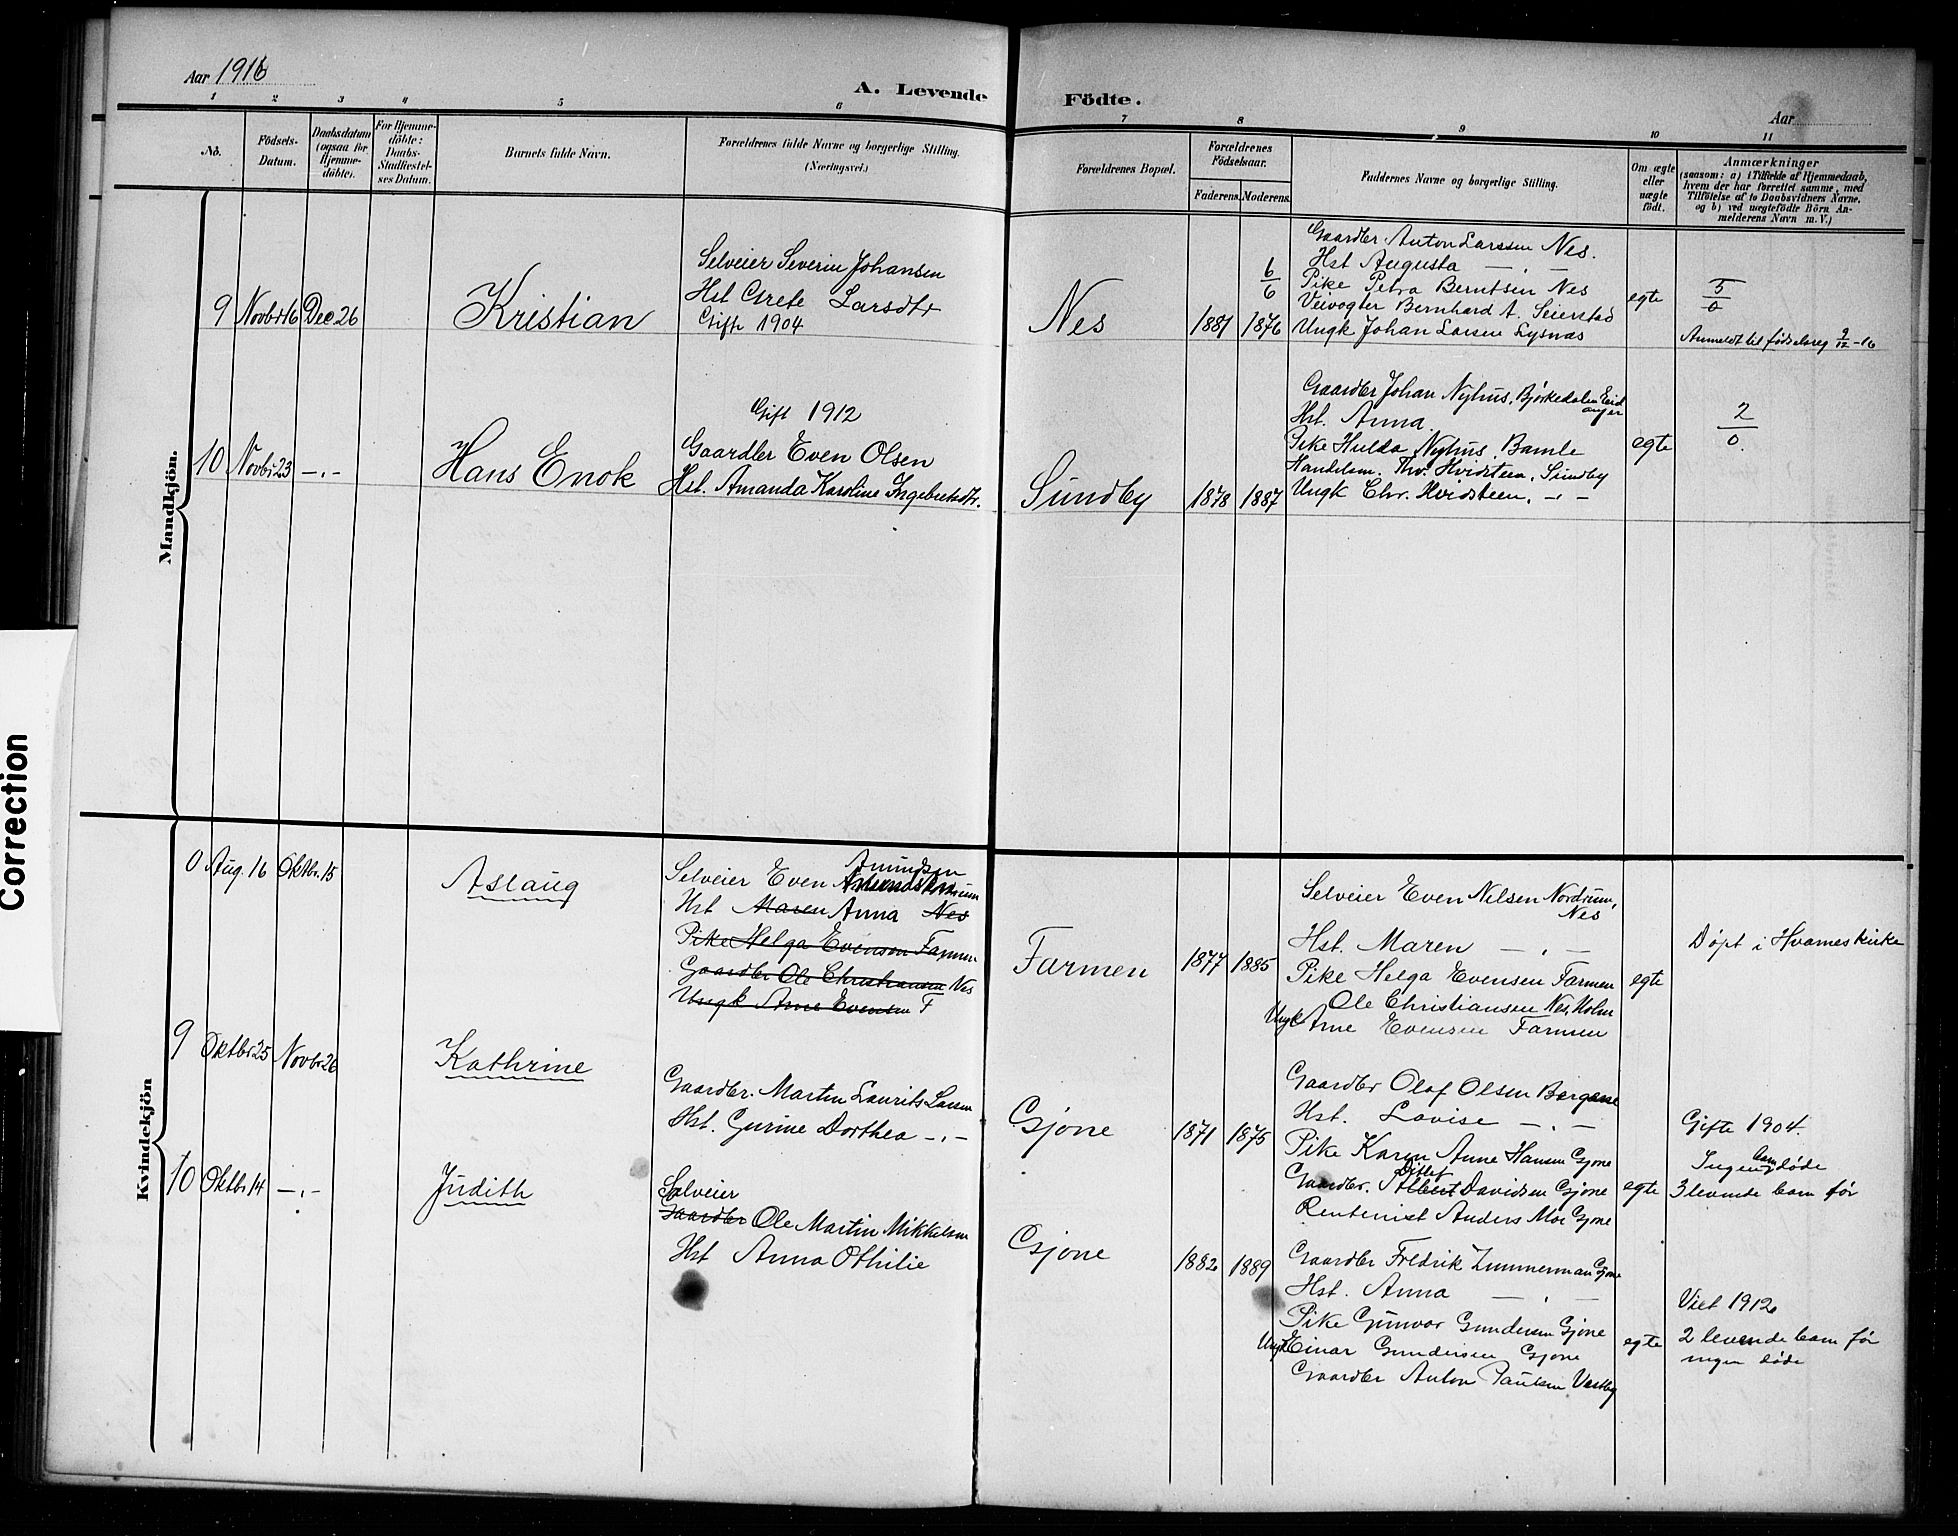 Aar 1916
A. Levende
Födte.
Aar
1 2 3 4 5 6
7 8 9 10 11
No.
Födsels-
Datum.
Daabsdatum
(ogsaa for
Hjemme-
döbte).
For Hjemme-
döbte:
Daabs-
Stadfæstel-
ses Datum.
Barnets fulde Navn.
Forældrenes fulde Navne og borgerlige Stilling.
(Næringsvei.)
Forældrenes Bopæl.
Forældrenes
Födselsaar.
Faderens. Moderens.
Faddernes Navne og borgerlige Stilling.
Om ægte
eller
uægte
födt.
Anmærkninger
(saasom: a) i Tilfælde af Hjemmedaab,
hvem der har forrettet samme, med
Tilföielse af to Daabsvidners Navne,
og b) ved uægtefödte Börn An-
melderens Navn m. V.)
Mandkjön.
9 Novbr 16 Dec 26
Kristian
Selveier Severin Johansen
Hst Grete Larsdtr
Gift 1904
Nes
1881 1876
6/6
Gaardbr. Anton Larssen Nes.
Hst Augusta — " —
Pike Petra Berntsen Nes
Veivogter Bernhard A. Seierstad
Ungk Johan Larsen Lysnæs
egte
5/0
Anmeldt til fødselsreg 9/12-16
10 Novbr 23 — " —
Hans Enok
Gift 1912
Gaardbr Even Olsen
Hst. Amanda Karoline Ingebretsdtr.
Sundby
1878 1887
Gaardbr Johan Nyhus, Bjørkedalen Eid
anger
Hst. Anna.
Pike Hulda Nyhus, Bamle
Handelsm. Thv. Hvidsteen, Sundby
Ungk Chr. Hvidsteen, — " —
egte
2/0.
Kvindekjön
0 Aug. 16 Oktbr. 15
Aslaug
Amundsen
Selveier Even
Hst Maren Anna Nes
Pike Helga Evensen Farmen
Gaardbr Ole Christiansen Nes
Ungk Arne Evensen F
Farmen
1877 1885
Selveier Even Nelsen Nordrum,
Nes
Hst. Maren — " —
Pike Helga Evensen Farmen
Ole Christiansen Nes, Holm
Ungk Arne Evensen Farmen
egte
Døpt i Hvarneskirke
9 Oktbr 25 Novbr 26
Kathrine
Gaardbr. Martin Laurits Larsen
Hst. Gurine Dorthea — " —
Gjone
1871 1875
Gaardbr Olaf Olsen Bergene
Hst. Lovise — " —
Pike Karen Anne Hansen Gjone
Ditlef
Gaardbr. Albert Davidsen Gjone
Rentenist Anders Moe Gjone
egte
Gifte 1904.
barn
Ingen døde
3 levende barn før
10 Oktbr 14 — " —
Judith
Selveier
Gaardbr Ole Martin Mikkelsen
Hst Anna Othilie
Gjone
1882 1889
Gaardbr Fredrik Zimmerman Gjone
Hst. Anna — " —
Pike Gunvor Gundersen Gjone
Ungk Einar Gundersen Gjone
Gaardbr Anton Paulsen Vestby
egte
Viet 1912
2 levende barn før
ingen døde
Correction